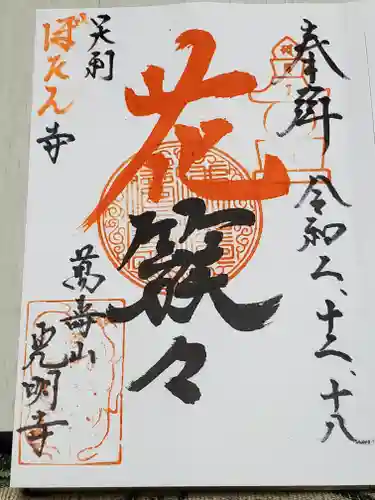 奉拝 令和二、十二、十八
花簇々
足利
ぼたん寺
萬壽山
光明寺